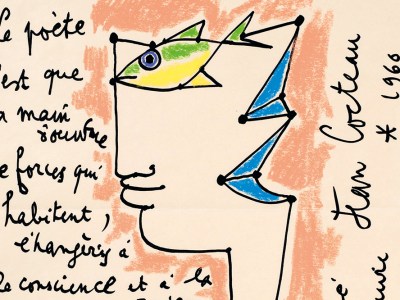 Le poète
'est que
a main
d'œuvre
e forces qui
habitent,
étrangères à
conscience et à la
Jean Cocteau
* 1960